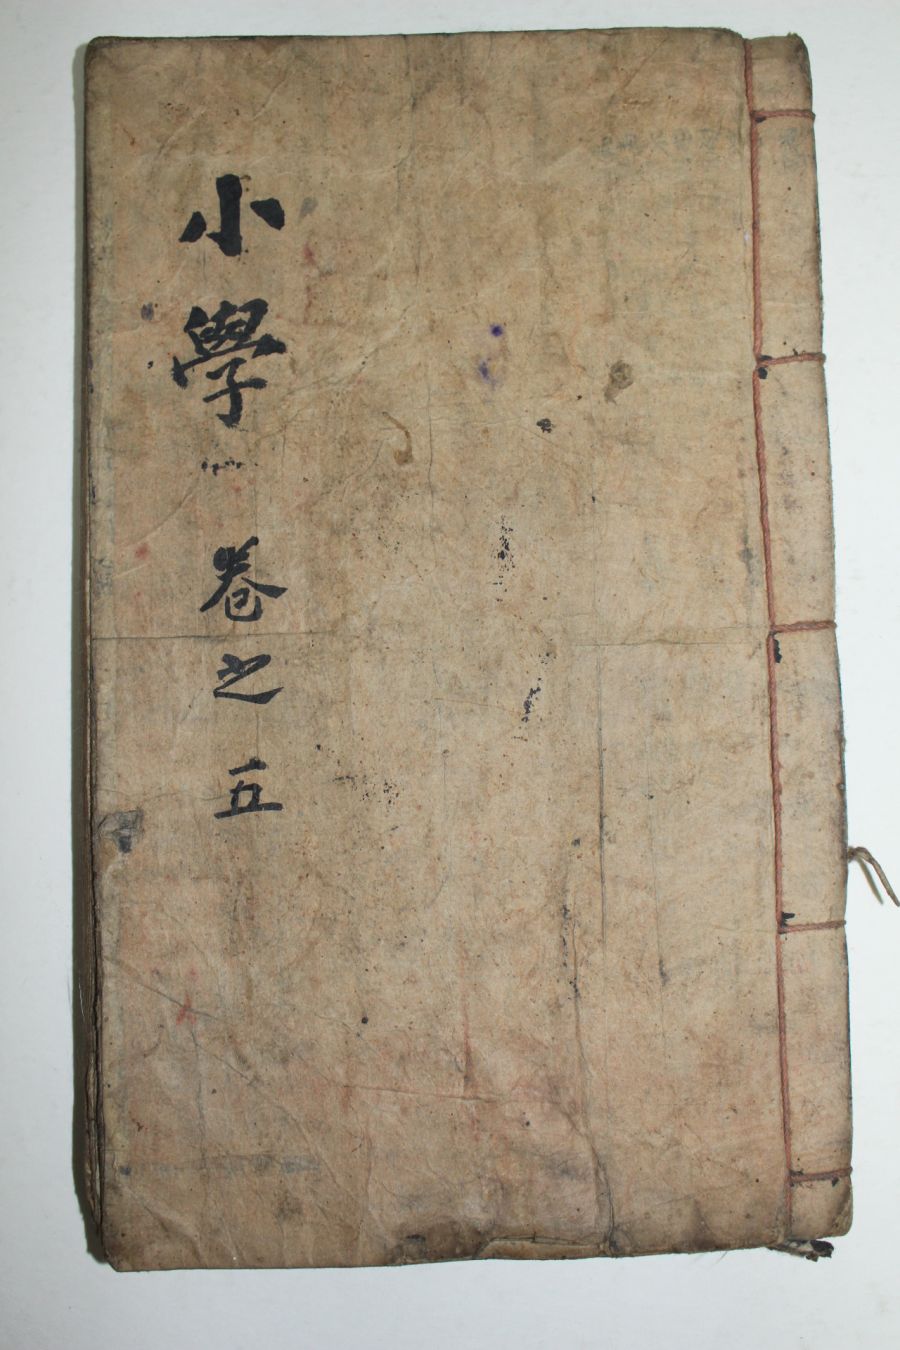 小學 卷之五